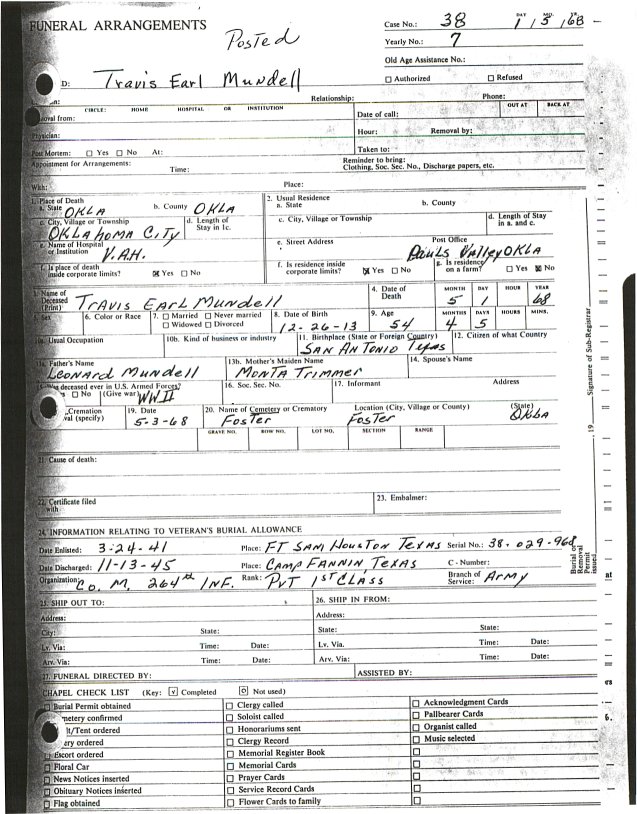 FUNERAL ARRANGEMENTS
Posted
Case No.: 38
DAY MO. YR.
1 / 5 / 68
Yearly No.: 7
Old Age Assistance No.:
☐ Authorized ☐ Refused
D: Travis Earl Mundell
Relationship: Phone:
CIRCLE: HOME HOSPITAL OR INSTITUTION
OUT AT BACK AT
oval from:
Date of call:
Physician:
Hour: Removal by:
Post Mortem: ☐ Yes ☐ No At:
Taken to:
Appointment for Arrangements:
Time:
Reminder to bring:
Clothing, Soc. Sec. No., Discharge papers, etc.
With: Place:
1. Place of Death
a. State OKLA b. County OKLA
2. Usual Residence
a. State b. County
c. City, Village or Township d. Length of Stay in 1c.
OKLAHOMA CITY
c. City, Village or Township d. Length of Stay in a. and c.
e. Name of Hospital or Institution V.A.H.
e. Street Address Post Office
PAULS VALLEY OKLA
f. Is place of death inside corporate limits? ☒ Yes ☐ No
f. Is residence inside corporate limits? ☒ Yes ☐ No
g. Is residence on a farm? ☐ Yes ☒ No
3. Name of Deceased (Print) TRAVIS EARL MUNDELL
4. Date of Death MONTH DAY HOUR YEAR
5 1 68
5. Sex 6. Color or Race 7. ☐ Married ☐ Never married ☐ Widowed ☐ Divorced
8. Date of Birth 12-26-13
9. Age 54
MONTHS DAYS HOURS MINS.
4 5
10a. Usual Occupation 10b. Kind of business or industry
11. Birthplace (State or Foreign Country) SAN ANTONIO TEXAS
12. Citizen of what Country
13a. Father's Name LEONARD MUNDELL
13b. Mother's Maiden Name MONTA TRIMMER
14. Spouse's Name
deceased ever in U.S. Armed Forces?
☐ No (Give war) WWII
16. Soc. Sec. No. 17. Informant Address
Cremation
val (specify)
19. Date 5-3-68
20. Name of Cemetery or Crematory Foster
Location (City, Village or County) (State)
Foster OKLA
GRAVE NO. ROW NO. LOT NO. SECTION RANGE
21. Cause of death:
22. Certificate filed with
23. Embalmer:
24. INFORMATION RELATING TO VETERAN'S BURIAL ALLOWANCE
Date Enlisted: 3-24-41 Place: FT SAM HOUSTON TEXAS Serial No.: 38-029-968
Date Discharged: 11-13-45 Place: CAMP FANNIN, TEXAS C - Number:
Organization: CO. M. 264th INF. Rank: PVT 1ST CLASS Branch of Service: ARMY
25. SHIP OUT TO: 26. SHIP IN FROM:
Address: Address:
City: State: State: State:
Lv. Via: Time: Date: Lv. Via. Time: Date:
Arv. Via: Time: Date: Arv. Via: Time: Date:
27. FUNERAL DIRECTED BY: ASSISTED BY:
CHAPEL CHECK LIST (Key: ☑ Completed ☐ Not used)
☐ Burial Permit obtained ☐ Clergy called ☐ Acknowledgment Cards
metery confirmed ☐ Soloist called ☐ Pallbearer Cards
lt/Tent ordered ☐ Honorariums sent ☐ Organist called
ery ordered ☐ Clergy Record ☐ Music selected
☐ Escort ordered ☐ Memorial Register Book ☐
☐ Floral Car ☐ Memorial Cards ☐
☐ News Notices inserted ☐ Prayer Cards ☐
☐ Obituary Notices inserted ☐ Service Record Cards ☐
☐ Flag obtained ☐ Flower Cards to family ☐
Signature of Sub-Registrar
, 19
Burial or Removal Permit issued
at
rs
6.